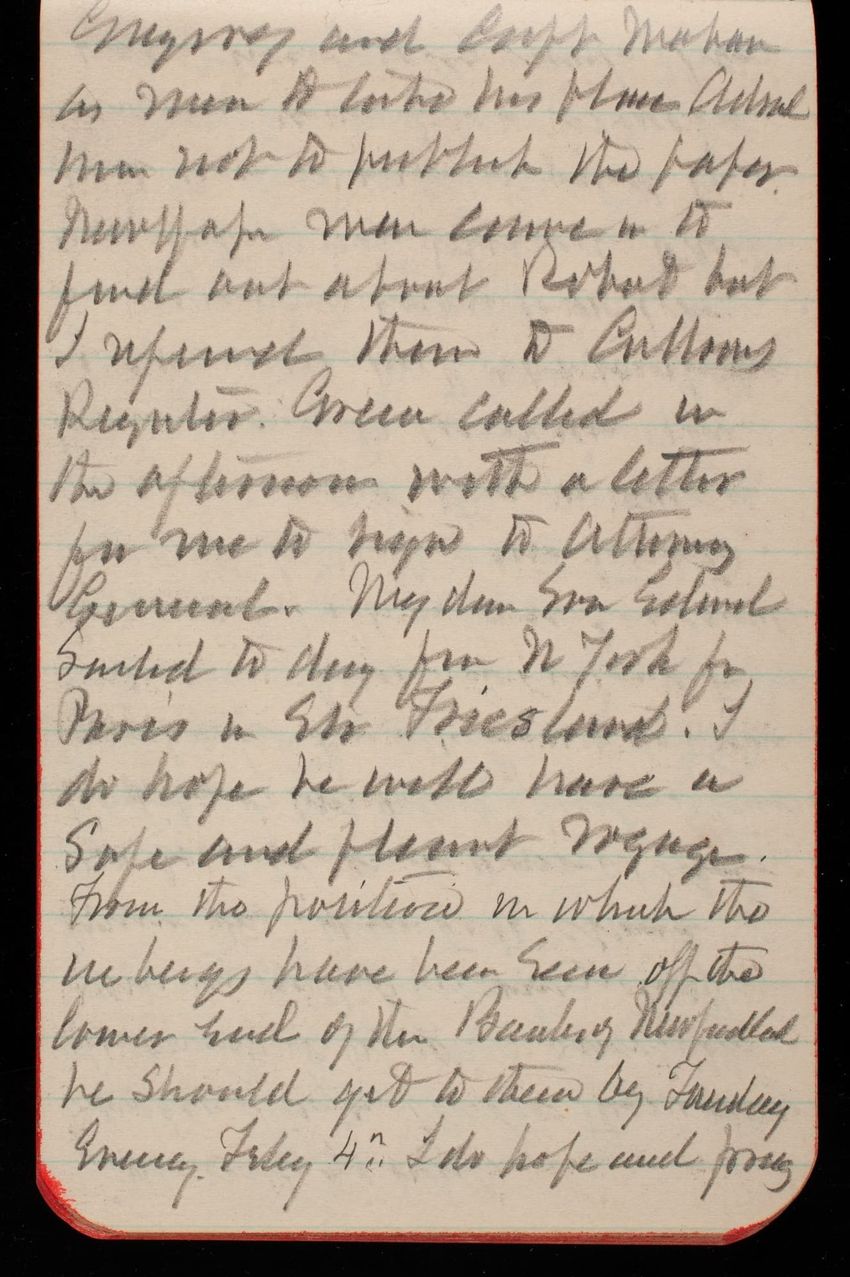 and Capt Mahan
as men to take his place
him not to publish the paper.
Newspaper men came in to
find out about but
I refered them to
Register. Green called in
the afternoon with a letter
for me to sign to Attorney
General. My dear Son Edward
Sailed to day from N York for
Paris in Str Friesland. I
do hope he will have a
Safe and pleasant voyage.
From the position in which the
ice bergs have been Seen off the
lower End of the Banks of Newfundland
he Should get to them by
Evening. Feby 4th I do hope and pray